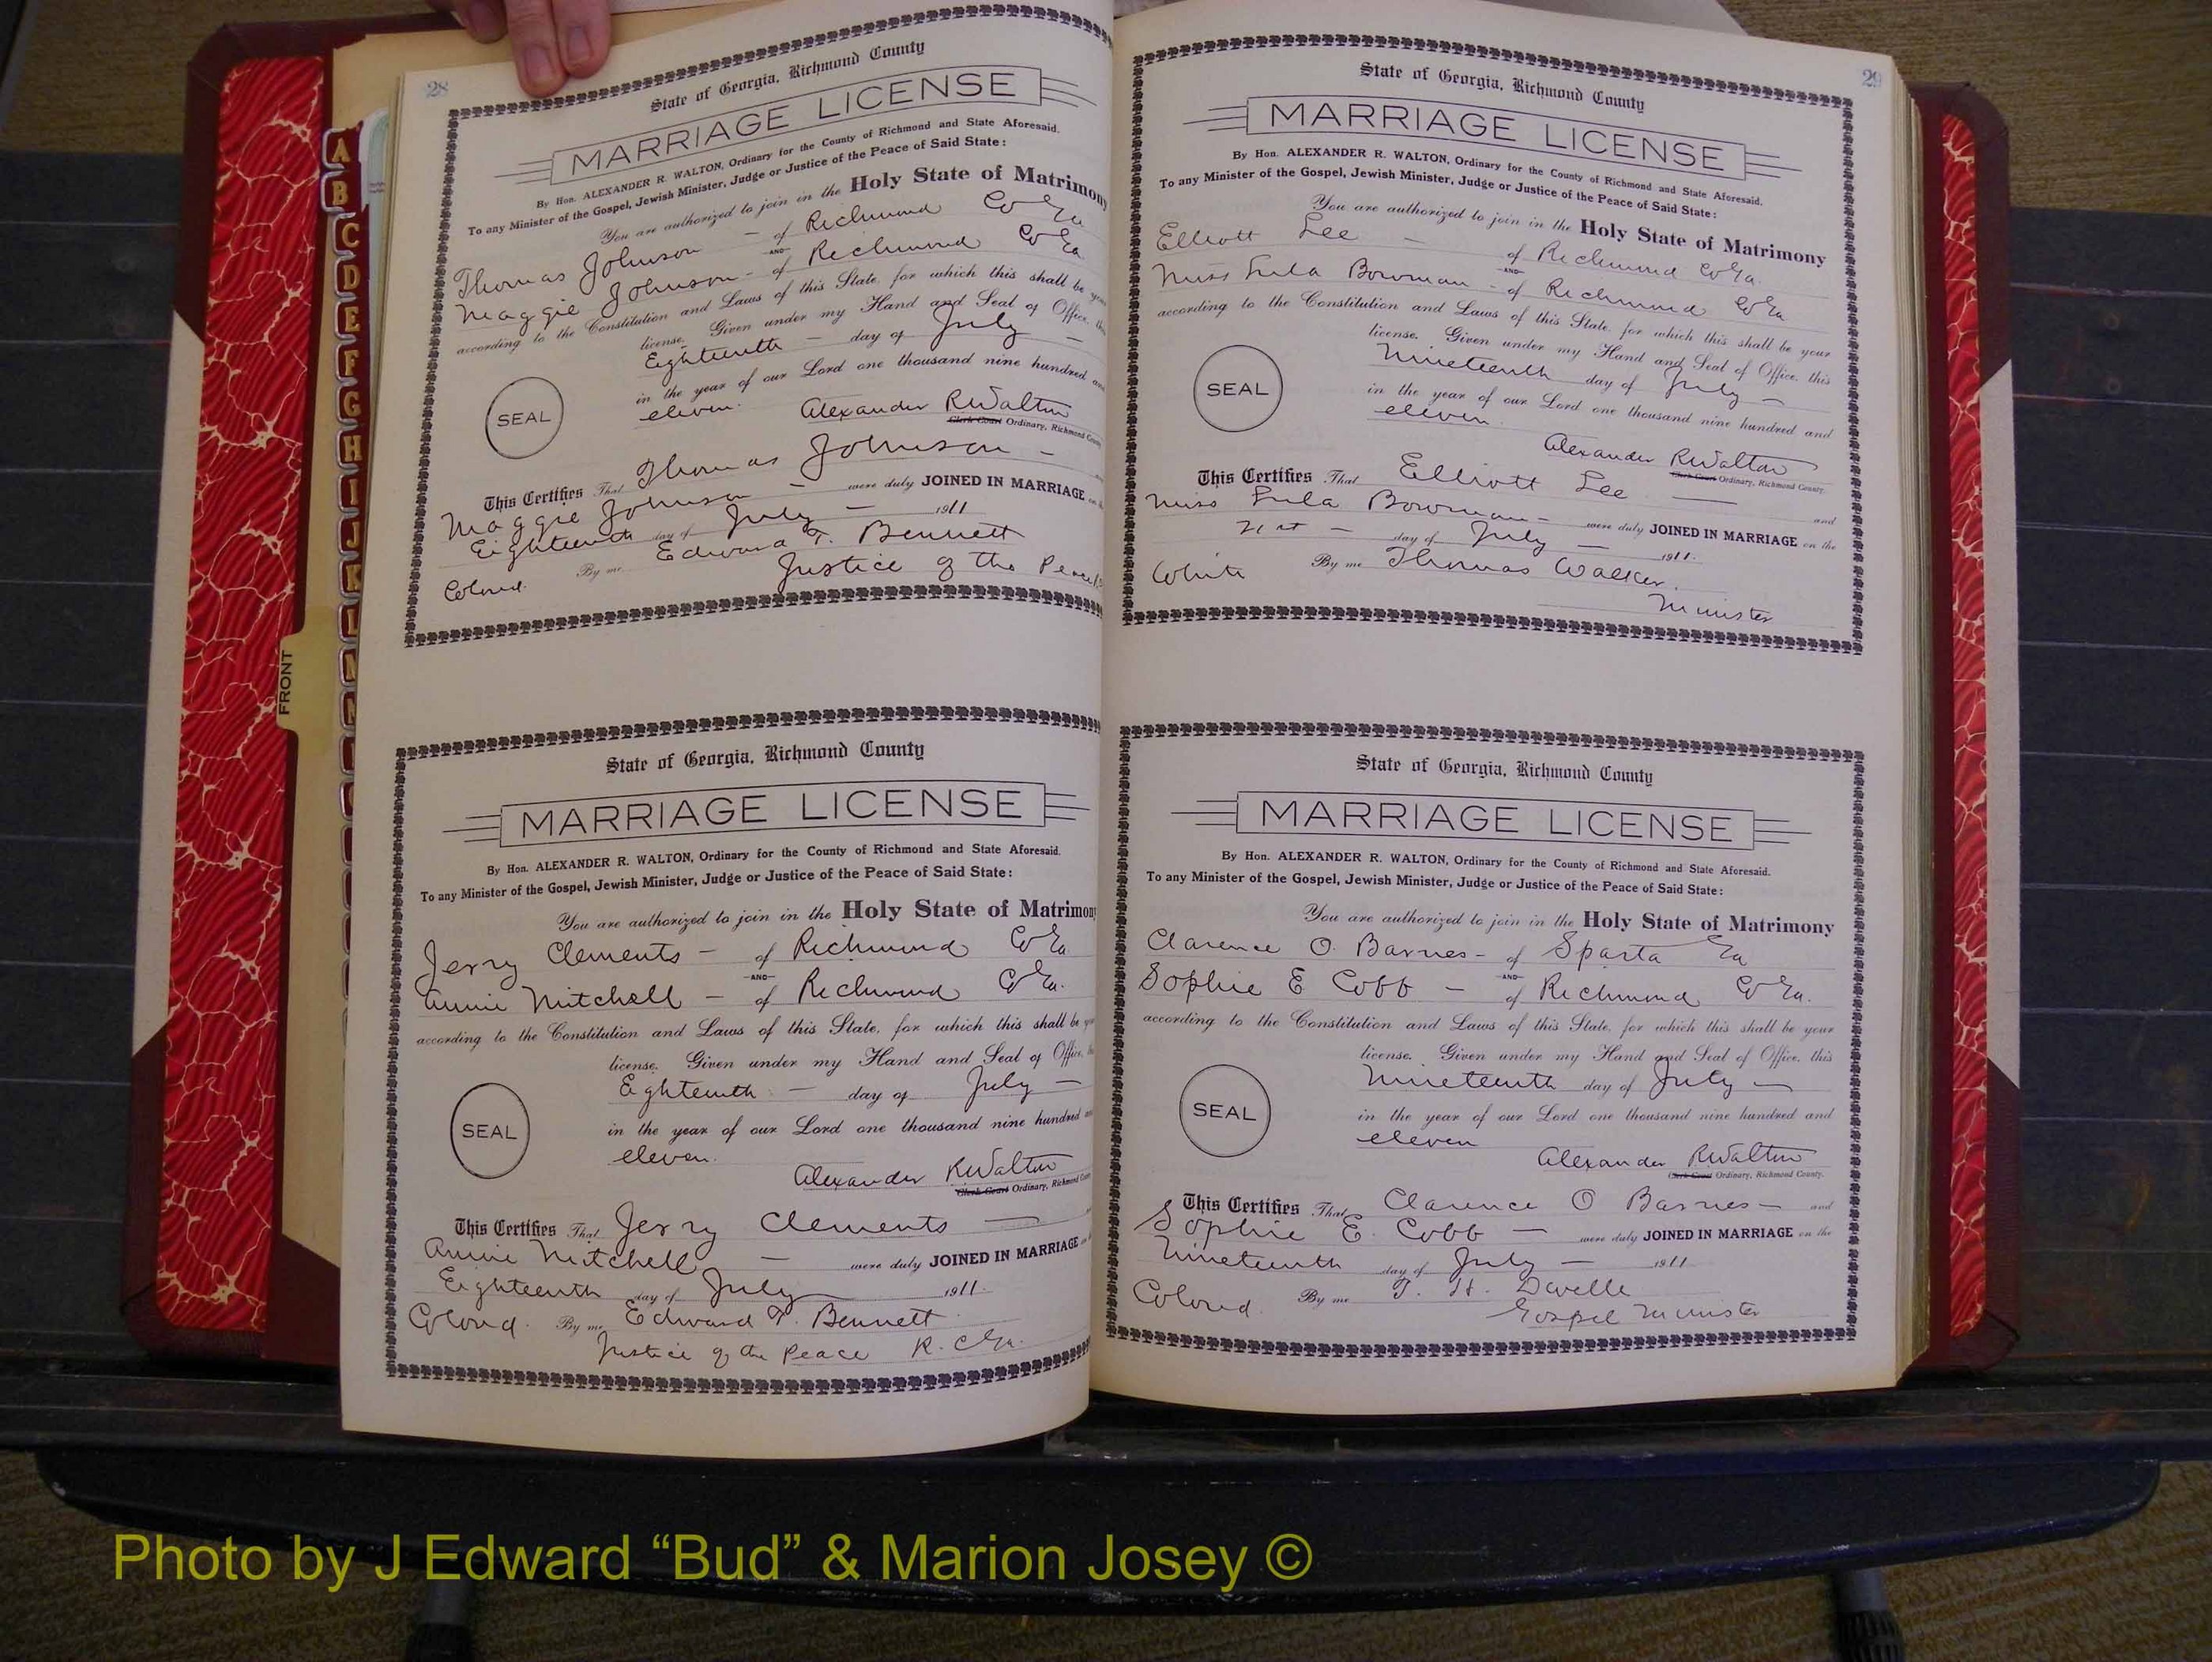 28
State of Georgia, Richmond County
MARRIAGE LICENSE
By Hon. ALEXANDER R. WALTON, Ordinary for the County of Richmond and State Aforesaid.
To any Minister of the Gospel, Jewish Minister, Judge or Justice of the Peace of Said State:
You are authorized to join in the Holy State of Matrimony
Thomas Johnson – of Richmond Co Ga
—AND—
Maggie Johnson – of Richmond Co Ga.
according to the Constitution and Laws of this State, for which this shall be your
license. Given under my Hand and Seal of Office, this
Eighteenth – day of July –
in the year of our Lord one thousand nine hundred and
eleven.
SEAL
Alexander R Walton
Clerk Court Ordinary, Richmond County
This Certifies That Thomas Johnson –
Maggie Johnson – were duly JOINED IN MARRIAGE on the
Eighteenth day of July – 1911
Colored. By me Edward T. Bennett
Justice of the Peace
State of Georgia, Richmond County
MARRIAGE LICENSE
By Hon. ALEXANDER R. WALTON, Ordinary for the County of Richmond and State Aforesaid.
To any Minister of the Gospel, Jewish Minister, Judge or Justice of the Peace of Said State:
You are authorized to join in the Holy State of Matrimony
Jerry Clements – of Richmond Co Ga
—AND—
Annie Mitchell – of Richmond Co Ga.
according to the Constitution and Laws of this State, for which this shall be your
license. Given under my Hand and Seal of Office, this
Eighteenth – day of July –
in the year of our Lord one thousand nine hundred and
eleven.
SEAL
Alexander R Walton
Clerk Court Ordinary, Richmond County
This Certifies That Jerry Clements —
Annie Mitchell – were duly JOINED IN MARRIAGE on
Eighteenth day of July 1911.
Colored. By me Edward T. Bennett
Justice of the Peace R. C Ga.
29
State of Georgia, Richmond County
MARRIAGE LICENSE
By Hon. ALEXANDER R. WALTON, Ordinary for the County of Richmond and State Aforesaid.
To any Minister of the Gospel, Jewish Minister, Judge or Justice of the Peace of Said State:
You are authorized to join in the Holy State of Matrimony
Elliott Lee – of Richmond Co Ga.
—AND—
Miss Lula Bowman – of Richmond Co Ga
according to the Constitution and Laws of this State, for which this shall be your
license. Given under my Hand and Seal of Office, this
Nineteenth day of July –
in the year of our Lord one thousand nine hundred and
eleven.
SEAL
Alexander R Walton
Clerk Court Ordinary, Richmond County.
This Certifies That Elliott Lee — and
Miss Lula Bowman – were duly JOINED IN MARRIAGE on the
21st – day of July – 1911.
White By me Thomas Walker.
Minister
State of Georgia, Richmond County
MARRIAGE LICENSE
By Hon. ALEXANDER R. WALTON, Ordinary for the County of Richmond and State Aforesaid.
To any Minister of the Gospel, Jewish Minister, Judge or Justice of the Peace of Said State:
You are authorized to join in the Holy State of Matrimony
Clarence O. Barnes – of Sparta Ga
—AND—
Sophie E Cobb – of Richmond Co Ga.
according to the Constitution and Laws of this State, for which this shall be your
license. Given under my Hand and Seal of Office, this
Nineteenth day of July –
in the year of our Lord one thousand nine hundred and
eleven
SEAL
Alexander R Walton
Clerk Court Ordinary, Richmond County.
This Certifies That Clarence O Barnes – and
Sophie E. Cobb – were duly JOINED IN MARRIAGE on the
Nineteenth day of July – 1911
Colored. By me T. H. Dwelle
Gospel Minister
A
B
C
D
E
F
G
H
I
J
K
L
M
N
FRONT
Photo by J Edward “Bud” & Marion Josey ©